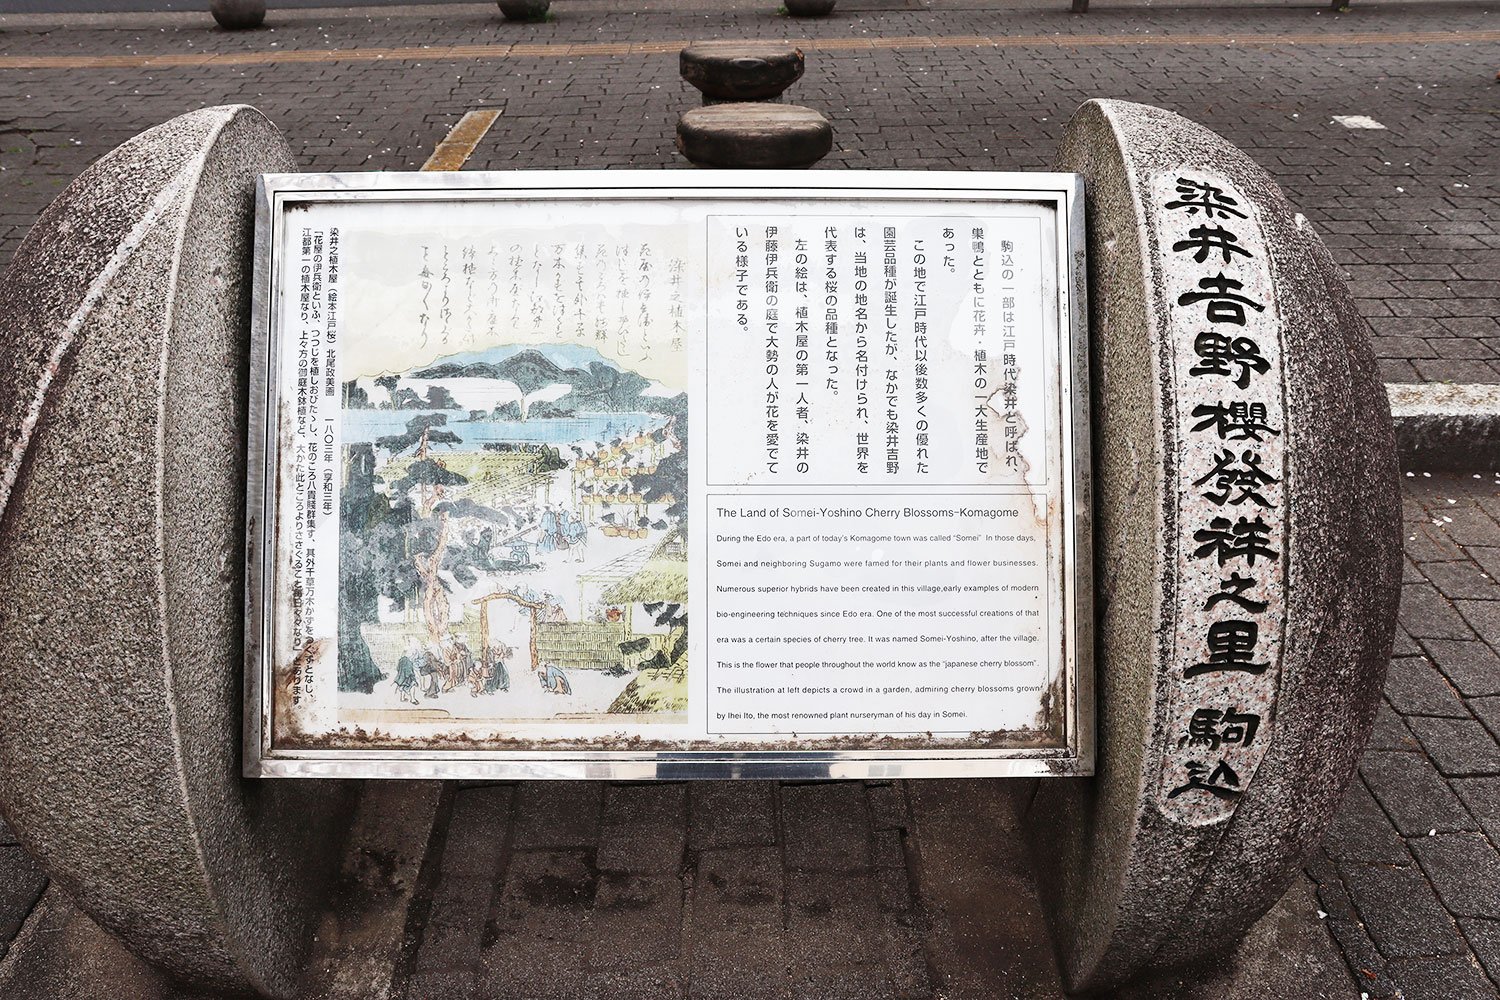 染井吉野櫻發祥之里 駒込
駒込の一部は江戸時代染井と呼ばれ、
巣鴨とともに花卉・植木の一大生産地で
あった。
この地で江戸時代以後数多くの優れた
園芸品種が誕生したが、なかでも染井吉野
は、当地の地名から名付けられ、世界を
代表する桜の品種となった。
左の絵は、植木屋の第一人者、染井の
伊藤伊兵衛の庭で大勢の人が花を愛でて
いる様子である。
The Land of Somei-Yoshino Cherry Blossoms-Komagome
During the Edo era, a part of today's Komagome town was called "Somei" In those days,
Somei and neighboring Sugamo were famed for their plants and flower businesses.
Numerous superior hybrids have been created in this village,early examples of modern
bio-engineering techniques since Edo era. One of the most successful creations of that
era was a certain species of cherry tree. It was named Somei-Yoshino, after the village.
This is the flower that people throughout the world know as the "japanese cherry blossom".
The illustration at left depicts a crowd in a garden, admiring cherry blossoms grown
by Ihei Ito, the most renowned plant nurseryman of his day in Somei.
染井之植木屋
染井之植木屋（絵本江戸桜）北尾政美画 一八〇三年（享和三年）
「花屋の伊兵衛といふ、つつじを植しおびたゝし、花のころ八貴賤群集す、其外千草万木かずをつくすとなし、
江都第一の植木屋なり、上々方の御庭木鉢植など、大かた此ところよりささぐること毎日々々なり」とあります